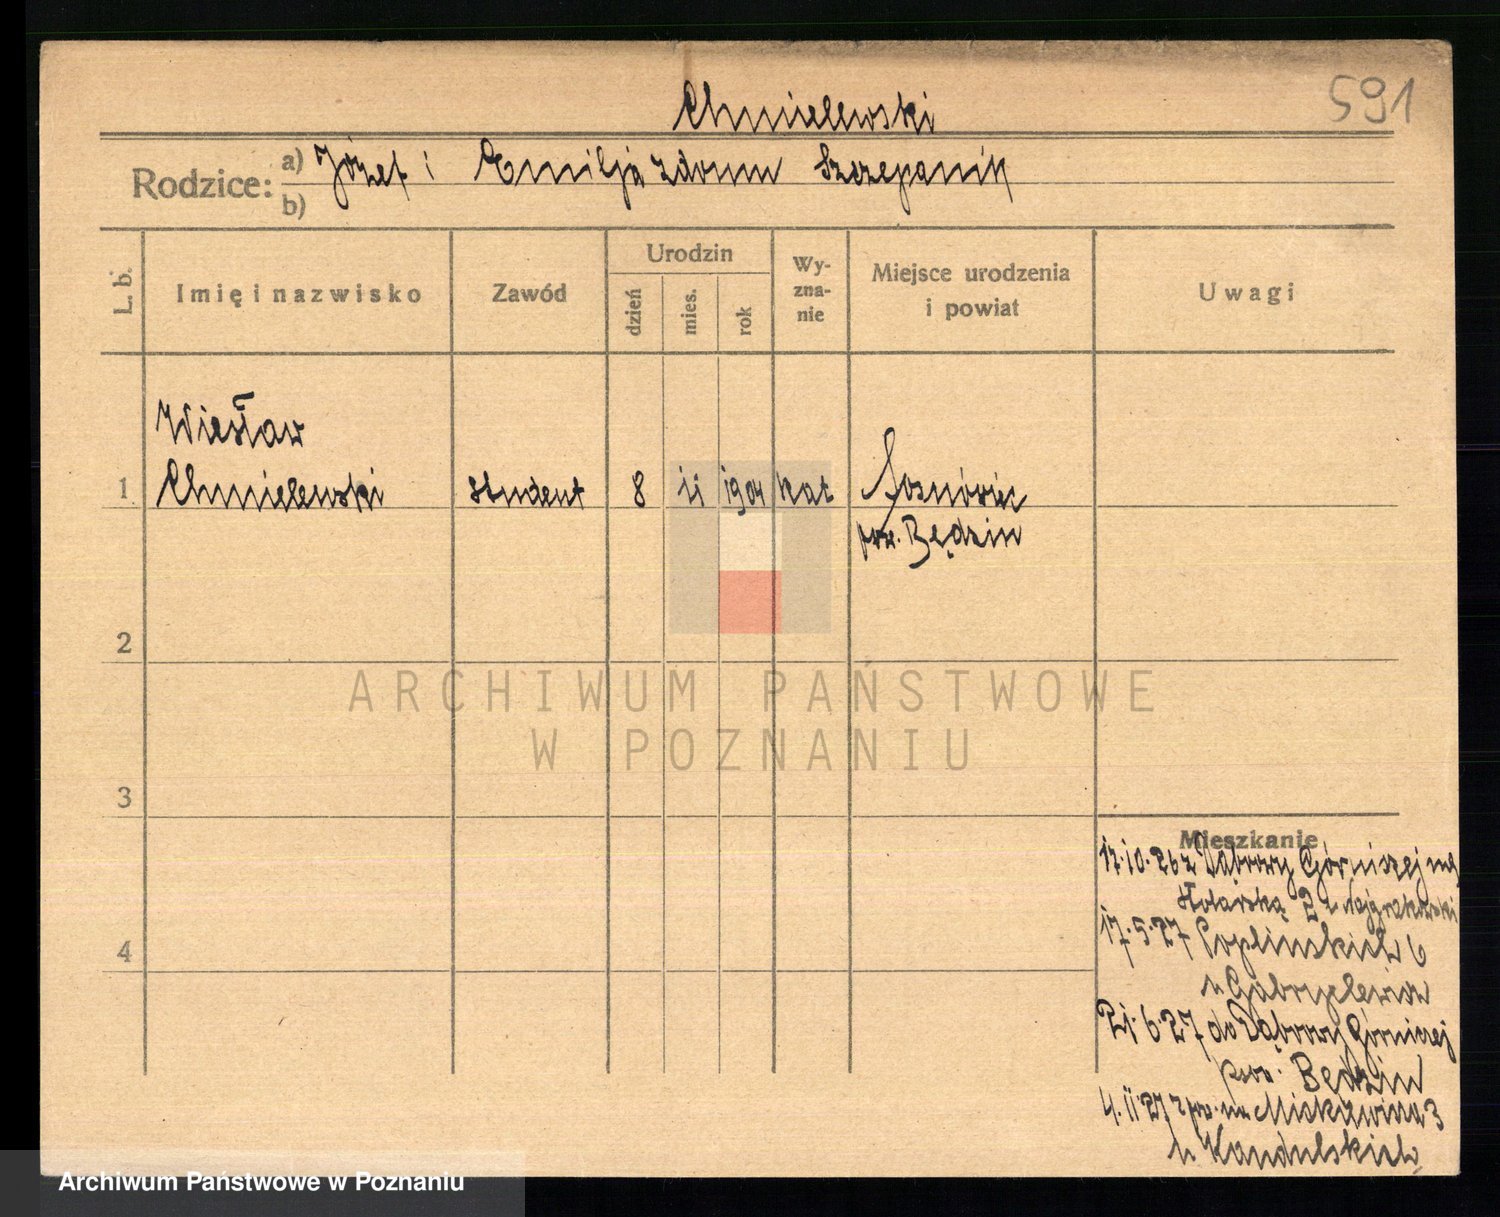 591
Chmielewski
Rodzice: a) Józef i Emilja z domu Szczepanik
b)
L. b.
Imię i nazwisko
Zawód
Urodzin
dzień
mies.
rok
Wy-
zna-
nie
Miejsce urodzenia
i powiat
Uwagi
Wiesław
1 Chmielewski student 8 11 1904 kat Sosnowiec
pow. Będzin
2
3
4
Mieszkanie
17.10.26 z Dąbrowy Górniczej na
2 u
17.5.27 Poplińskich 6
u Gabryelewicz
21.6.27 do Dąbrowy Górniczej
pow. Będzin
4.11.27 z pow. na Mickiewicza 3
u Kandulskich
ARCHIWUM PAŃSTWOWE
W POZNANIU
Archiwum Państwowe w Poznaniu